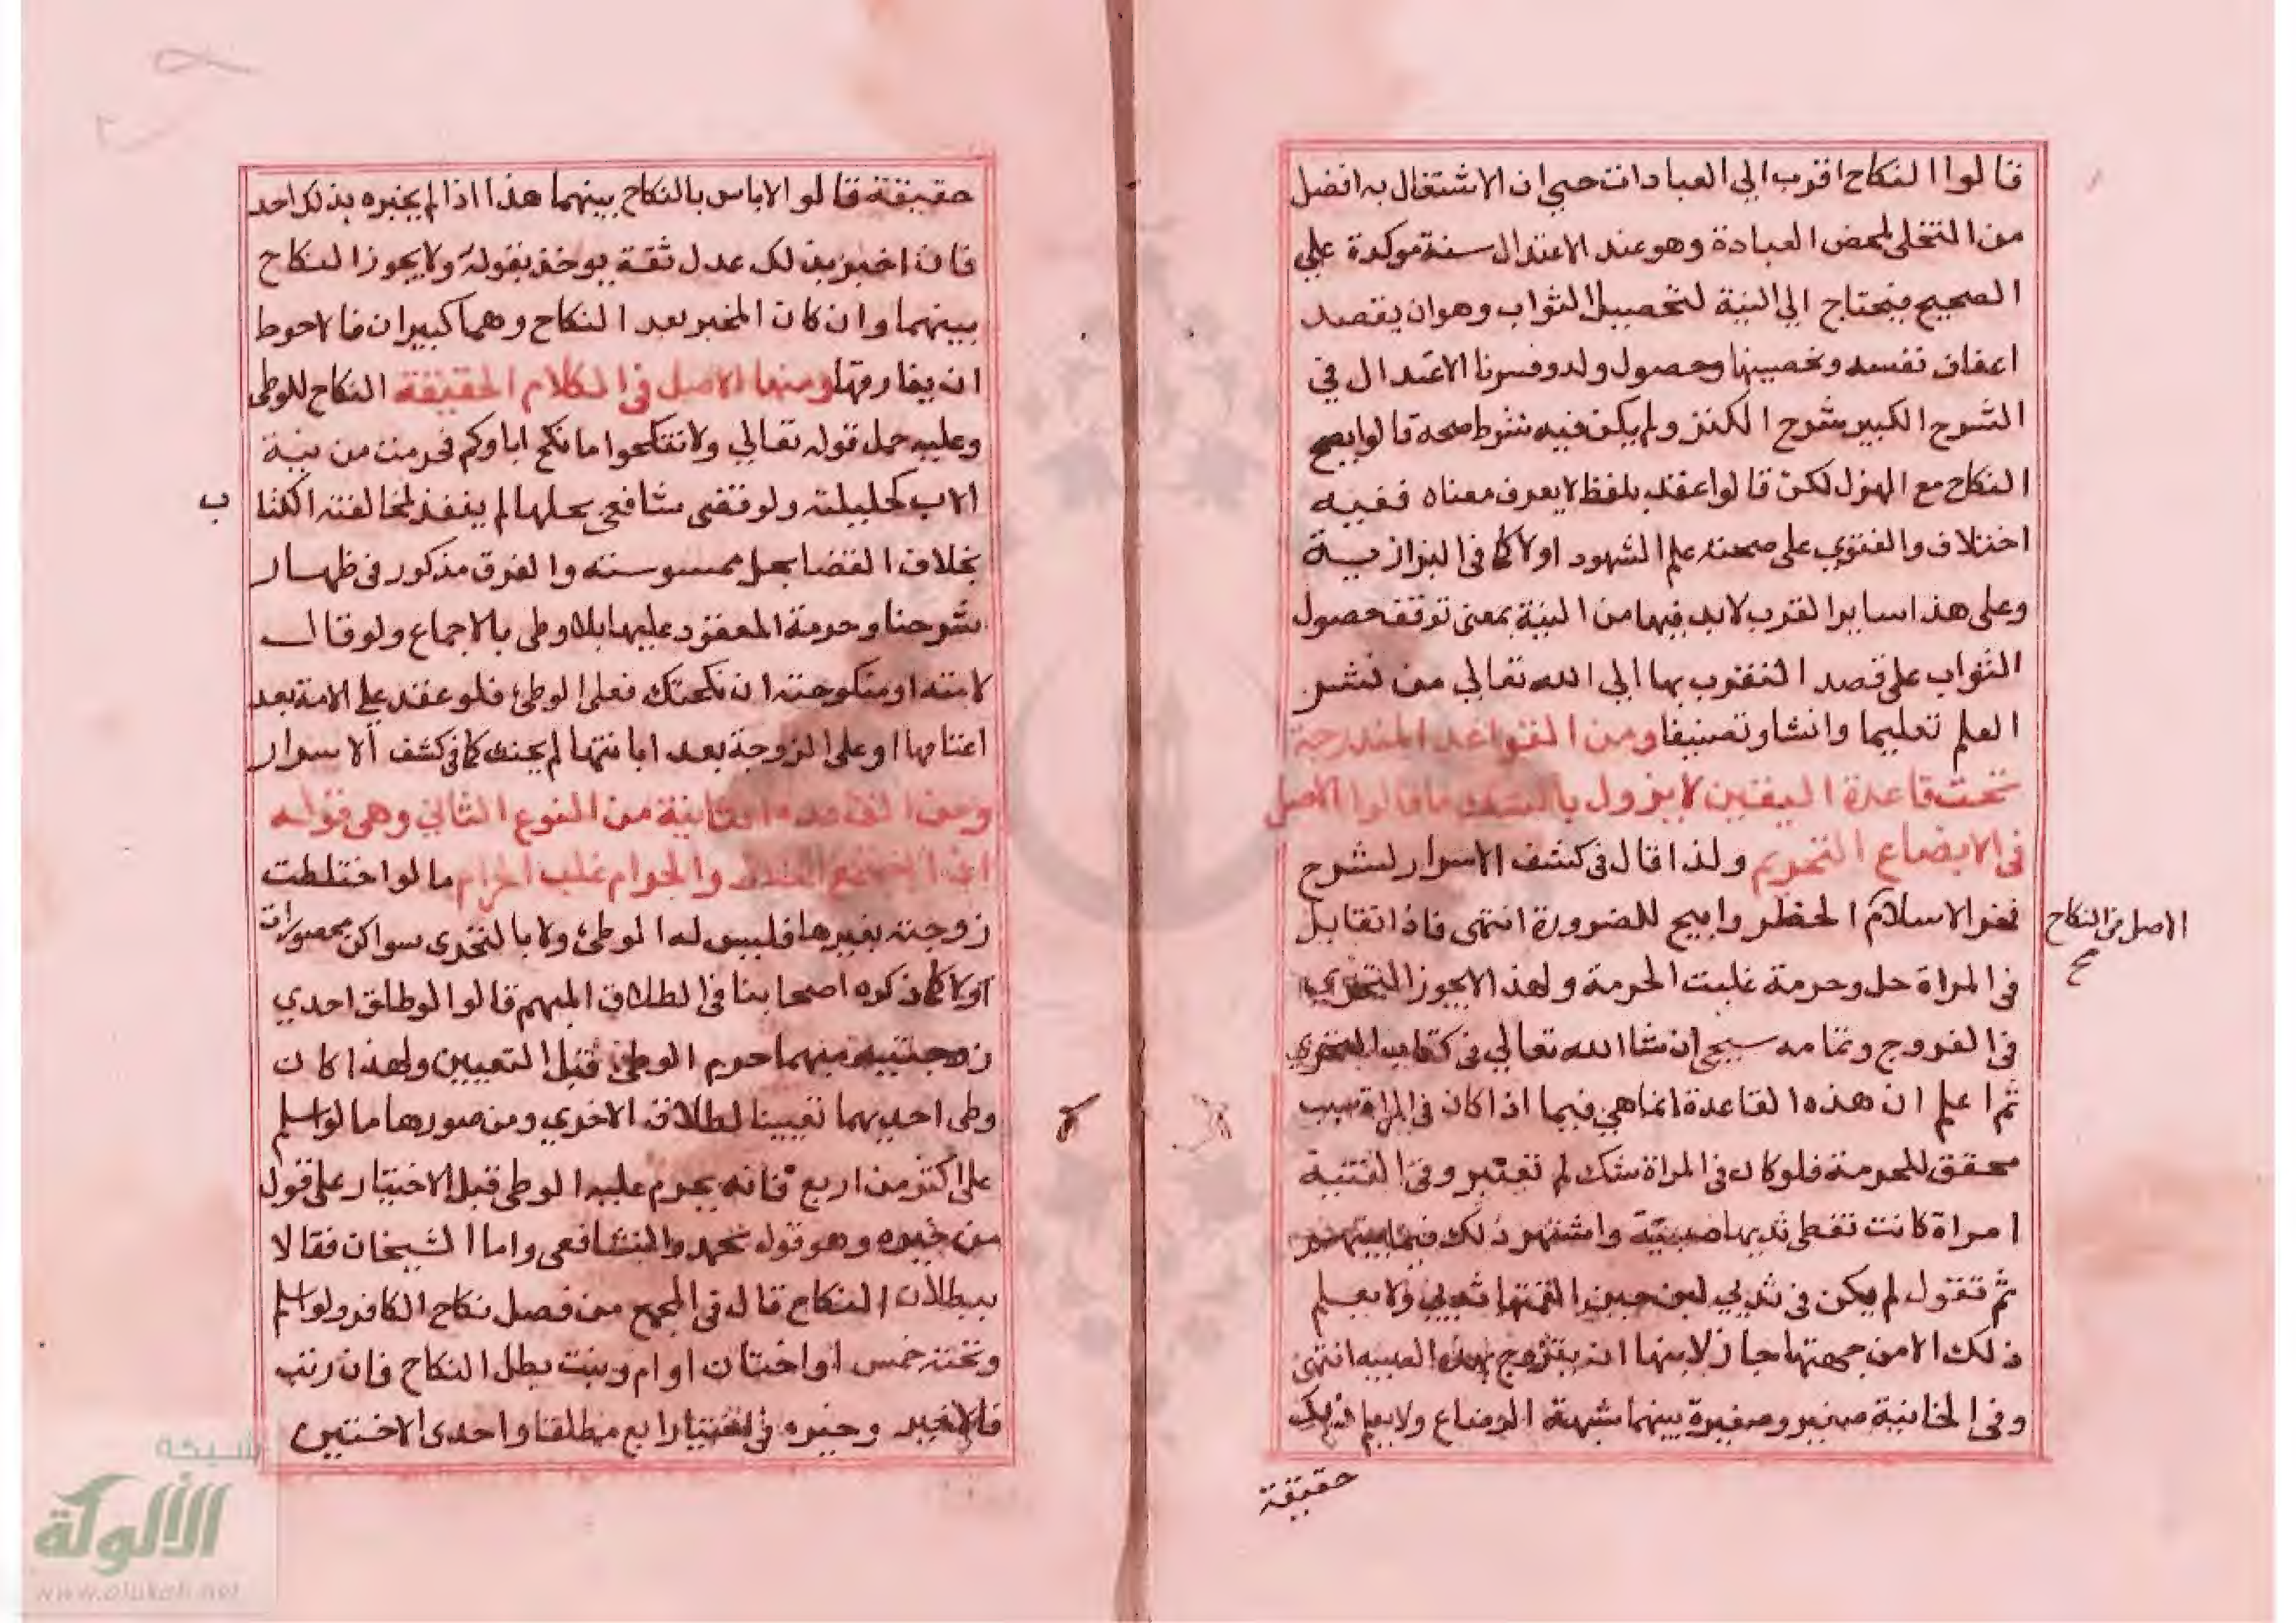 قالوا النكاح اقرب الي العبادات حتي ان الاشتغال به افضل
من التخلي لمحض العبادة وهو عند الاعتدال سنة موكدة علي
الصحيح فيحتاج الي النية لتحصيل الثواب وهو ان يقصد
اعفاف نفسه وتحصينها وحصول ولد وفسرنا الاعتدال في
الشرح الكبير شرح الكنز ولم يكن فيه شرط صحة قالوا يصح
النكاح مع الهزل لكن قالوا عقد بلفظ لا يعرف معناه ففيه
اختلاف والفتوي علي صحته علم الشهود اولا كما في البزازية
وعلى هذا ساير القرب لابد فيها من النية بمعنى توقف حصول
الثواب على قصد التقرب بها الي الله تعالي من نشر
العلم تعليما وانشا وتصنيفا ومن القواعد المندرجة
تحت قاعدة اليقين لا يزول بالشك ما قالوا الاصل
في الابضاع التحريم ولذا قال في كشف الاسرار لشرح
فخر الاسلام الحظر وابيح للضرورة انتهى فاذا تقابل
في المراة حل وحرمة غلبت الحرمة ولهذا لا يجوز التحري
في الفروج وتمامه سيجي ان شا الله تعالي في كتاب التحري
ثم اعلم ان هذه القاعدة انما هي فيما اذا كان في المراة سبب
محقق للحرمة فلو كان في المراة شك لم تعتبر وفي القنية
امراة كانت تعطي ثديها صبية واشتهر ذلك فيما بينهم
ثم تقول لم يكن في ثديي لبن حين القمتها ثديي ولا يعلم
ذلك الا من جهتها جاز لابنها ان يتزوج بهذه الصبية انتهى
وفي الخانية صغير وصغيرة بينهما شبهة الرضاع ولا يعلم ذلك
حقيقة
الاصل في النكاح
ح
حقيقة قالوا لاباس بالنكاح بينهما هذا اذا لم يخبره بذلك احد
فان اخبر بذلك عدل ثقة يوخذ بقوله ولا يجوز النكاح
بينهما وان كان المخبر بعد النكاح وهما كبيران فالاحوط
ان يفارقها ومنها الاصل في الكلام الحقيقة النكاح للوطي
وعليه حمل قوله تعالي ولا تنكحوا ما نكح اباوكم فحرمت من نية
الاب كحليلته ولو قضى شافعي بحلها لم ينفذ لمخالفته الكتا
ب
بخلاف القضا بحل ممسوسته والفرق مذكور في ظهار
شرحنا وحرمة المعقود عليها بلا وطي بالاجماع ولو قال
لامته او منكوحته ان نكحتك فعلى الوطئ فلو عقد علي الامة بعد
اعتاقها او على الزوجة بعد ابانتها لم يحنث كما في كشف الاسرار
ومن القاعدة الثانية من النوع الثاني وهي قوله
اذا اجتمع الحلال والحرام غلب الحرام ما لو اختلطت
زوجته بغيرها فليس له الوطئ ولا بالتحرى سوا كن محصورات
اولا كما ذكره اصحابنا في الطلاق المبهم قالوا لو طلق احدي
زوجتيه مبهما حرم الوطئ قبل التعيين ولهذا كان
وطى احديهما تعيينا لطلاق الاخري ومن صورها ما لو اسلم
على اكثر من اربع فانه يحرم عليه الوطي قبل الاختيار على قول
من خيره وهو قول محمد والشافعي واما الشيخان فقالا
ببطلان النكاح قال في المجمع من فصل نكاح الكافر ولو اسلم
وتحته خمس او اختان او ام وبنت بطل النكاح فان رتب
فالاخير وخيره في اختيار اربع مطلقا واحدى الاختين
شبكة
الألوكة
www.alukah.net